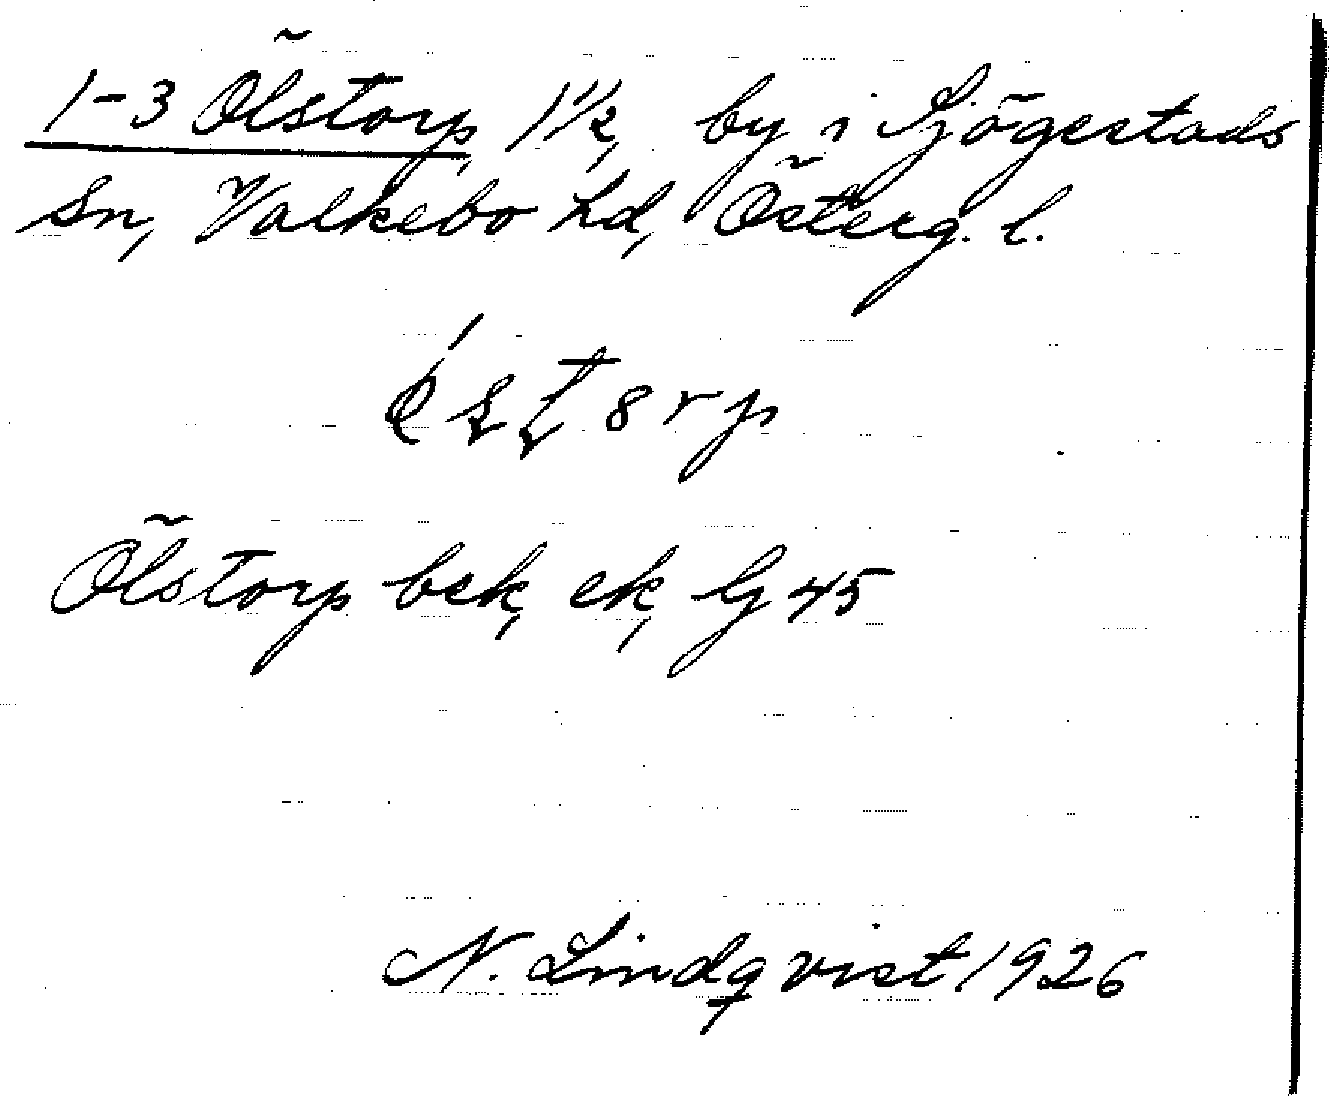 1-3 Ölstorp, 1 1/2, by i Sjögestads
sn, Valkebo hd, Österg. l.
Ölstorp bek, ek, G 45
N. Lindqvist 1926